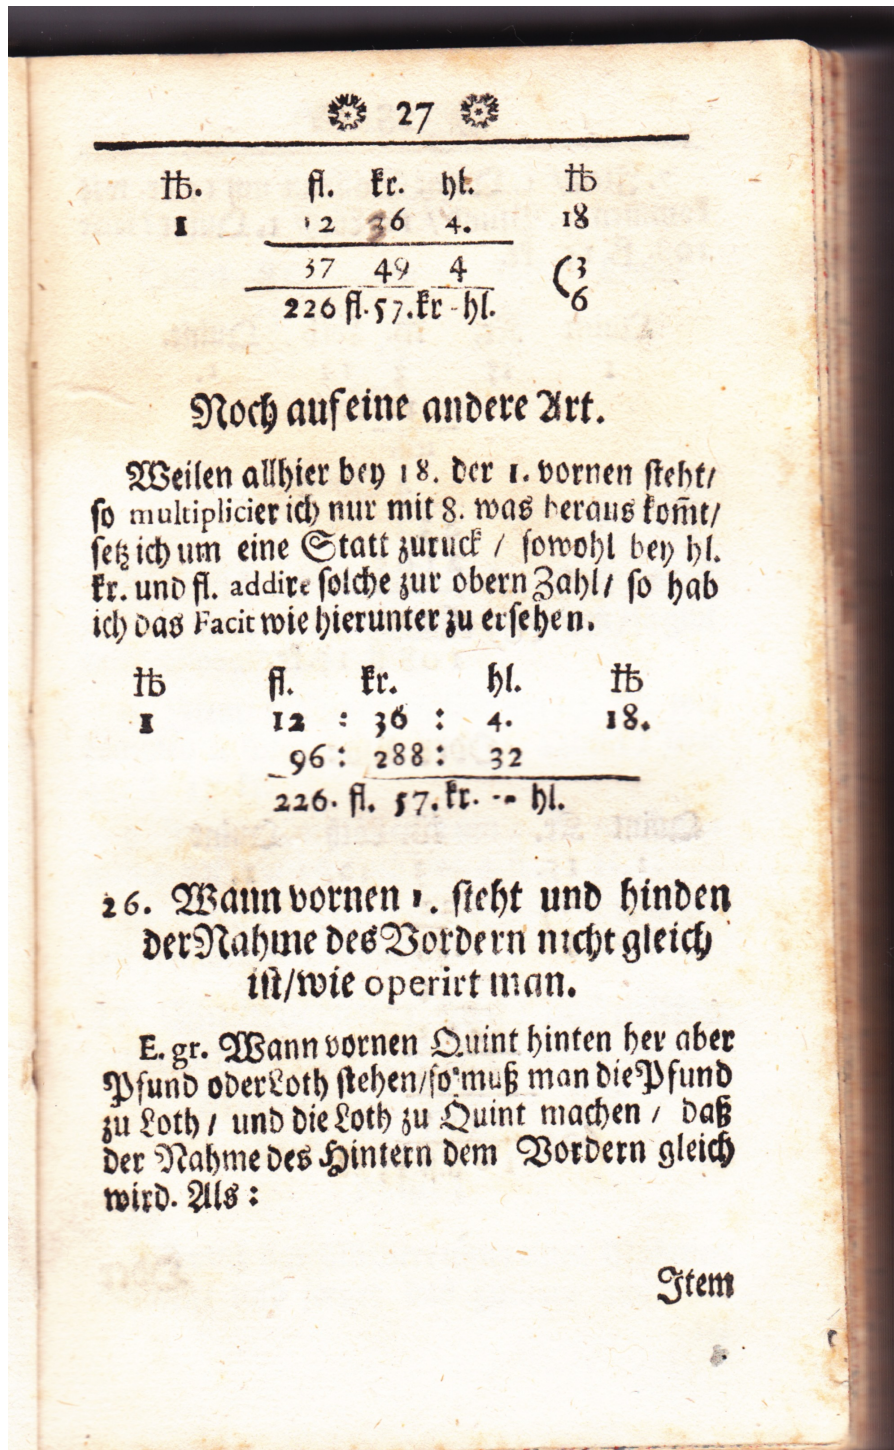 27
℔. fl. kr. hl. ℔
1 12 36 4. 18
37 49 4 (3
226 fl. 57. kr - hl. 6
Noch auf eine andere Art.
Weilen allhier bey 18. der 1. vornen steht/
so multiplicier ich nur mit 8. was heraus kom̃t/
setz ich um eine Statt zuruck / sowohl bey hl.
kr. und fl. addire solche zur obern Zahl/ so hab
ich das Facit wie hierunter zu ersehen.
℔ fl. kr. hl. ℔
1 12 : 36 : 4. 18.
96 : 288 : 32
226. fl. 57. kr. -- hl.
26. Wann vornen 1. steht und hinden
der Nahme des Vordern nicht gleich
ist/wie operirt man.
E. gr. Wann vornen Quint hinten her aber
Pfund oder Loth stehen/so muß man die Pfund
zu Loth / und die Loth zu Quint machen / daß
der Nahme des Hintern dem Vordern gleich
wird. Als :
Item